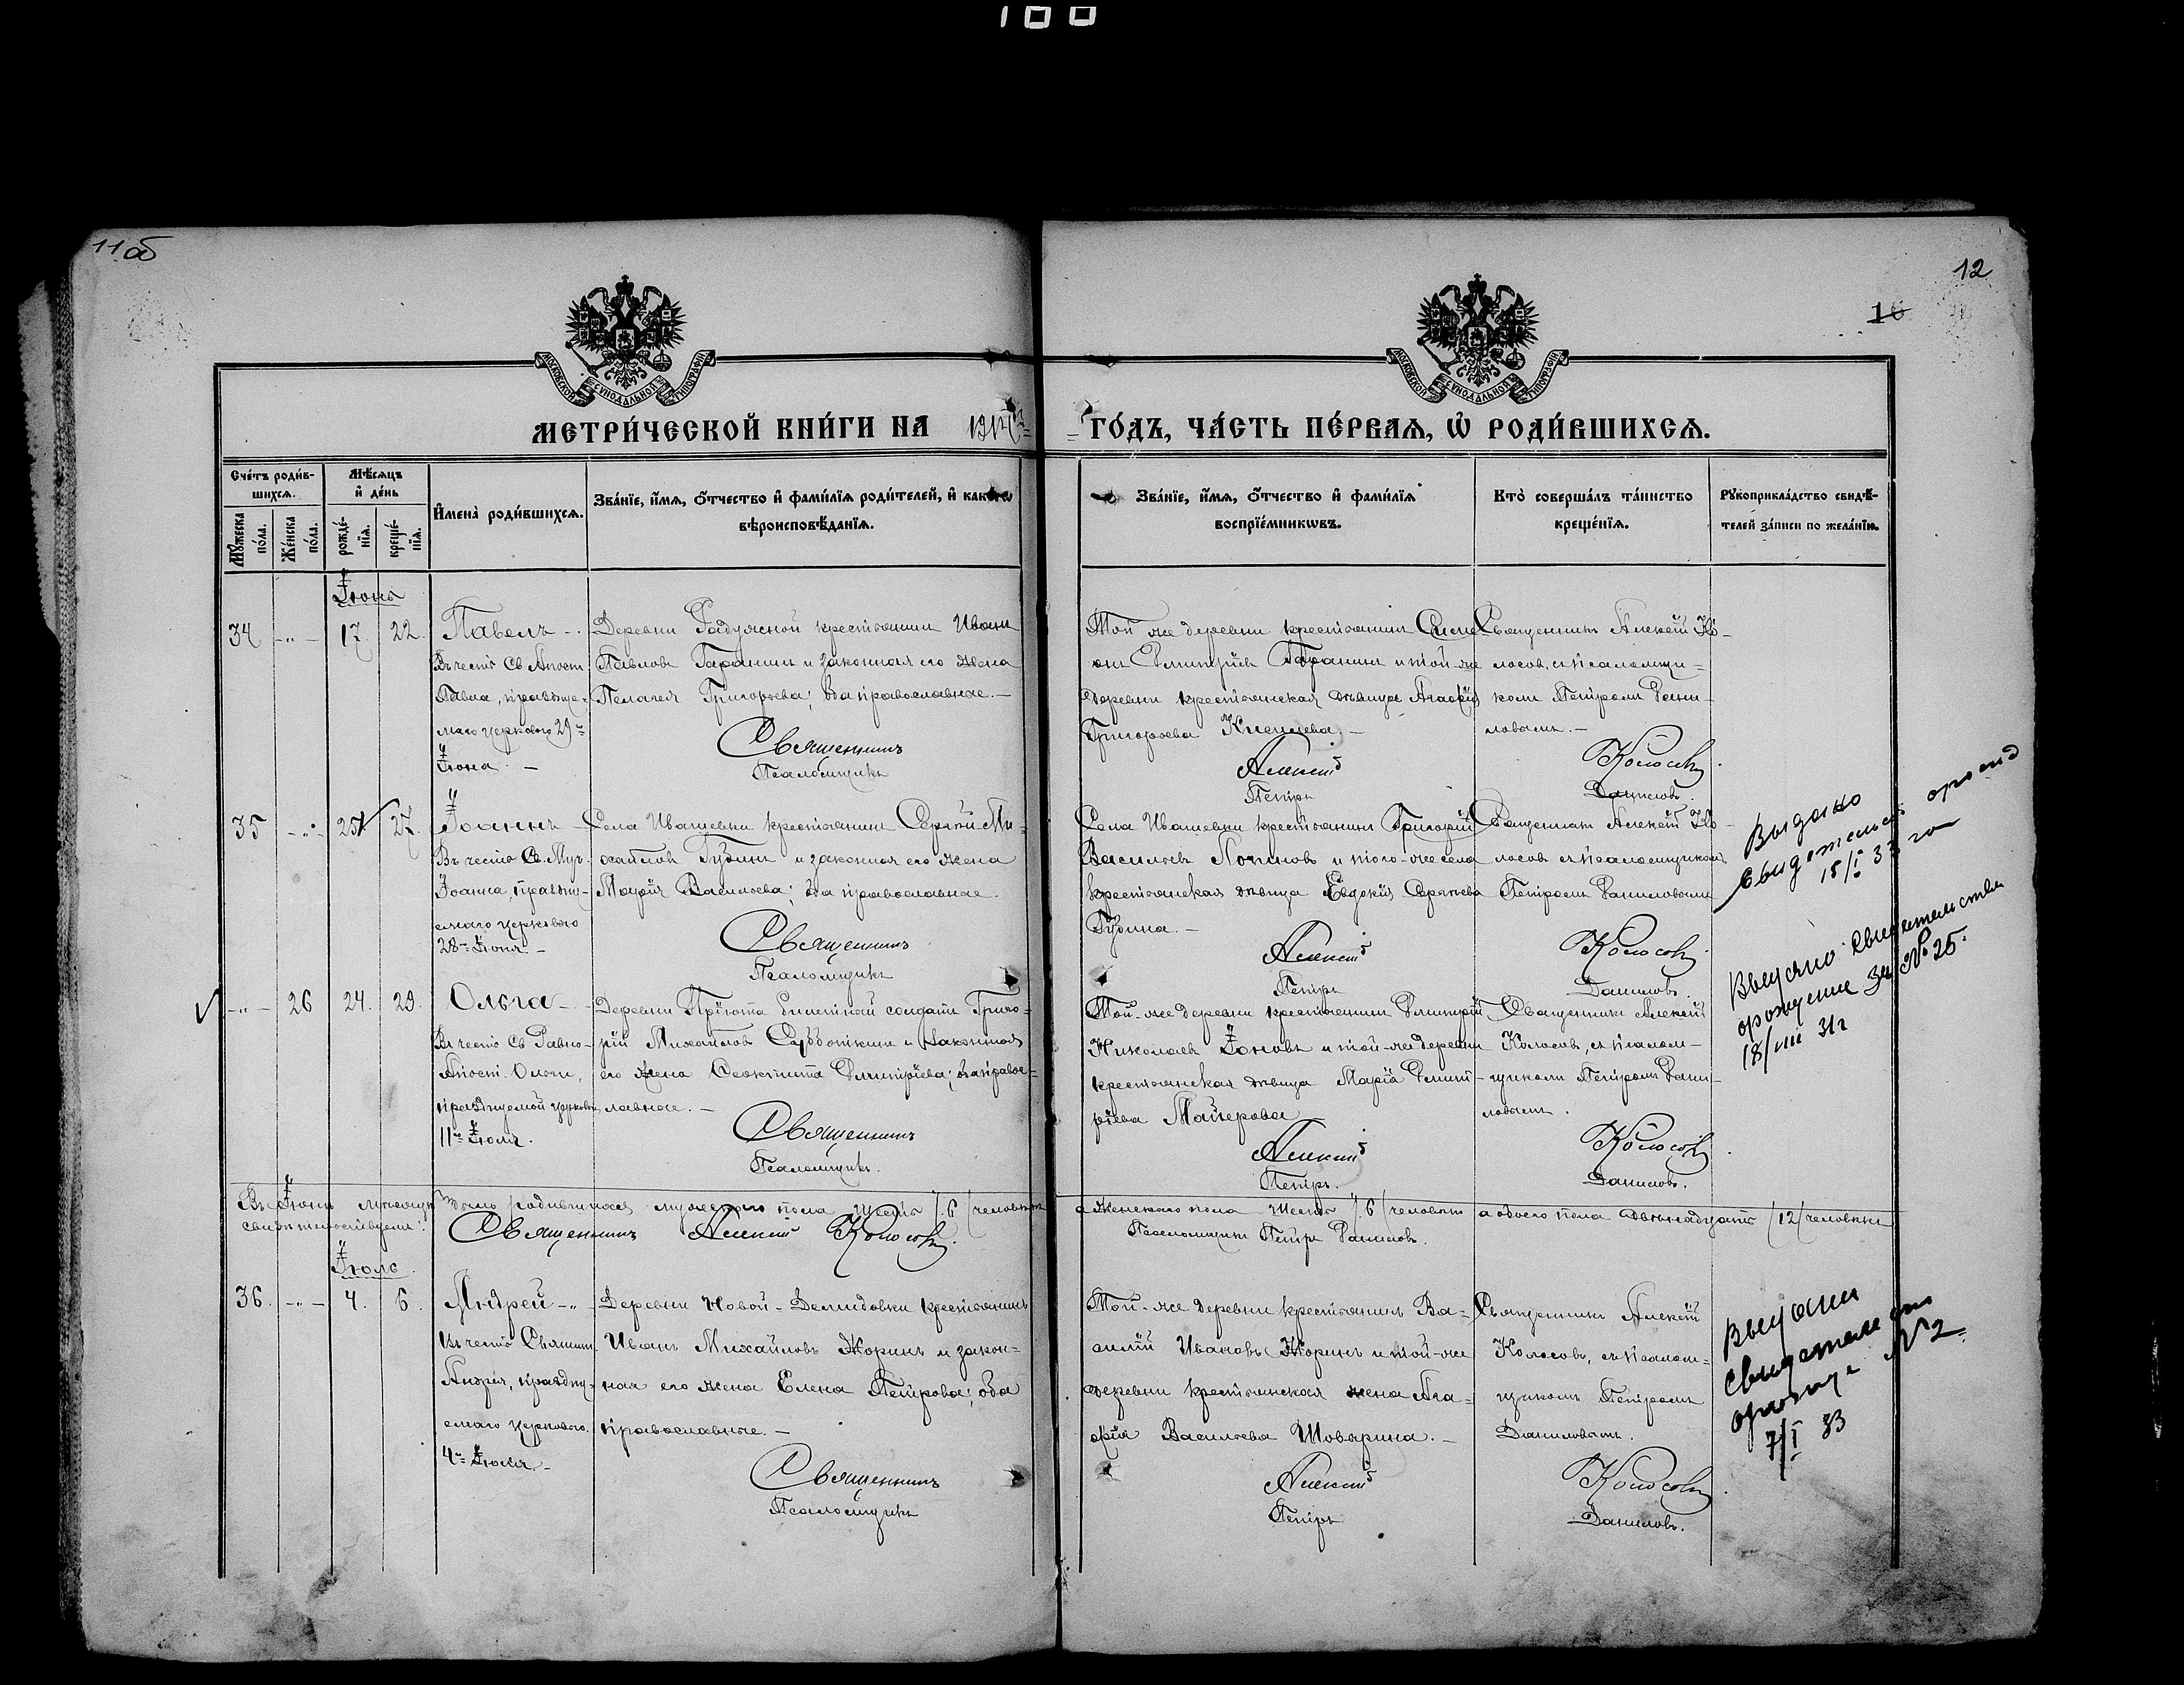 100
11 об
12
10
МОСКОВСКОЙ СѴНОДАЛЬНОЙ ТИПОГРАФІИ
МОСКОВСКОЙ СѴНОДАЛЬНОЙ ТИПОГРАФІИ
МЕТРИ́ЧЕСКОЙ КНИ́ГИ НА 1912й = = ГО́ДЪ, ЧА́СТЬ ПЕ́РВАѦ, Ѡ҆ РОДИ́ВШИХСѦ.
Сче́тъ роди́в-
шихсѧ.
Мꙋ́жеска по́ла.
Же́нска по́ла.
Мѣ́сѧцъ
и҆ де́нь
рожде́-
нїѧ.
креще́-
нїѧ.
И҆мена̀ роди́вшихсѧ.
Зва́нїе, и҆́мѧ, ѻ҆́тчество и҆ фами́лїѧ роди́телей, и҆ како́гѡ
вѣроисповѣ́данїѧ.
Зва́нїе, и҆́мѧ, ѻ҆́тчество и҆ фами́лїѧ
воспрїе́мникѡвъ.
Кто̀ соверша́лъ та́инство
креще́нїѧ.
Рꙋкоприкла́дство свидѣ́-
телей за́писи по жела́нїю.
Іюнь
34 -„- 17. 22.
Павелъ -.
Въ честь Св. Апост.
Павла, празднуе-
маго церковію 29го
Іюня. -
Деревни Радужной крестьянинъ Иванъ
Павловъ Гаранинъ и законная его жена
Пелагея Григорьева; оба православные. -
Священникъ
Псаломщикъ
Той же деревни крестьянинъ Симе-
онъ Димитріевъ Гаранинъ и той-же
деревни крестьянская дѣвица Агафія
Григорьева Князева. -
Алексій
Петръ
Священникъ Алексій Ко-
лосовъ, съ псаломщи-
комъ Петромъ Дани-
ловымъ. -
Колосовъ.
Даниловъ.
35 -„- 25 27.
Іоаннъ -
Въ честь Св. Муч.
Іоанна, праздну-
емаго церковію
28го Іюня. -
Села Ивашевки крестьянинъ Сергѣй Ми-
хайловъ Гудинъ и законная его жена
Марія Васильева; оба православные.
Священникъ
Псаломщикъ
Села Ивашевки крестьянинъ Григорій
Васильевъ Логиновъ и того-же села
крестьянская дѣвица Евдокія Сергѣева
Гудина. -
Алексій
Петръ
Священникъ Алексій Ко-
лосовъ съ псаломщикомъ
Петромъ Даниловымъ
Колосовъ.
Даниловъ.
Выдано
свидетельст. о рожд
15/I 33 год
-„- 26 24. 29.
Ольга - -
Въ честь Св. Равно-
Апост. Ольги,
празднуемой церковію
11го Іюля.
Деревни Пріюта билетный солдатъ Григо-
рій Михайловъ Субботкинъ и законная
его жена Феоктиста Димитріева; оба правос-
лавные. -
Священникъ
Псаломщикъ.
Той-же деревни крестьянинъ Димитрій
Николаевъ Іоновъ и той-же деревни
крестьянская дѣвица Марія Димит-
ріева Майерова
Алексій
Петръ.
Священникъ Алексій
Колосовъ, съ псалом-
щикомъ Петромъ Дани-
ловымъ.
Колосовъ.
Даниловъ.
Выдано свидетельства
о рождение за № 25.
18/VIII 31 г
Въ Іюнѣ мѣсяцѣ всѣхъ родившихся мужескаго пола шесть /6/ человѣкъ а женскаго пола шесть /6/ человѣкъ а обоего пола двѣнадцать /12/ человѣкъ
свидѣтельствуемъ: Священникъ Алексій Колосовъ. Псаломщикъ Петръ Даниловъ.
Іюль.
36. -„- 4. 6.
Андрей -„-
Въ честь Святит.
Андрея, праздну-
емаго церковію.
4го Іюля. -
Деревни Новой-Демидовки крестьянинъ
Иванъ Михайловъ Жоринъ и закон-
ная его жена Елена Петрова; оба
православные. -
Священникъ
Псаломщикъ
Той-же деревни крестьянинъ Ва-
силій Ивановъ Жоринъ и той-же
деревни крестьянская жена Ага-
фія Васильева Шоварина. -
Алексій
Петръ
Священникъ Алексій
Колосовъ, съ псалом-
щикомъ Петромъ
Даниловымъ.
Колосовъ.
Даниловъ.
Выдан
свидетельство
№ 2
7/I 33